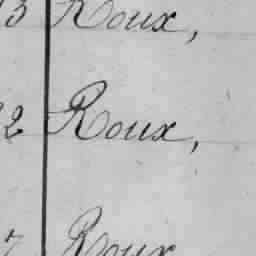 3 Roux,
2 Roux,
7 Roux